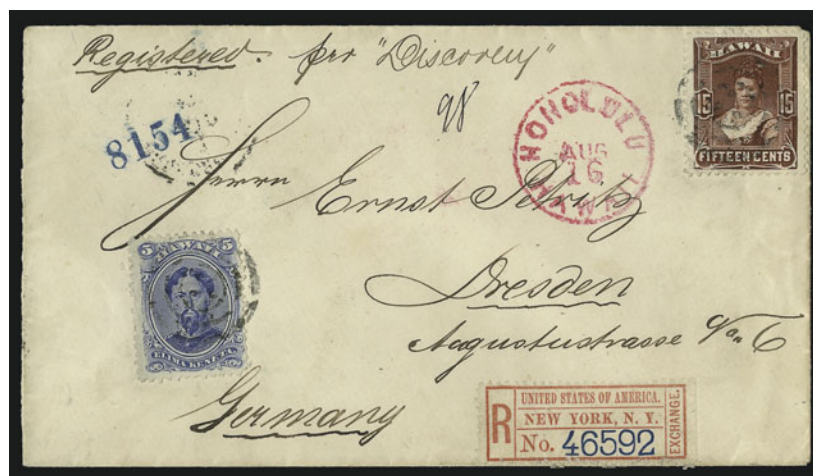 Registered. per "Discovery"
98
8154
HAWAII
15 15
FIFTEEN CENTS
HONOLULU
AUG
16
Herrn Ernst
Dresden
Augustusstrasse No. 6
Germany
5 5
HAWAII
ELIMA KENETA
R
UNITED STATES OF AMERICA.
NEW YORK, N. Y.
No. 46592
EXCHANGE.